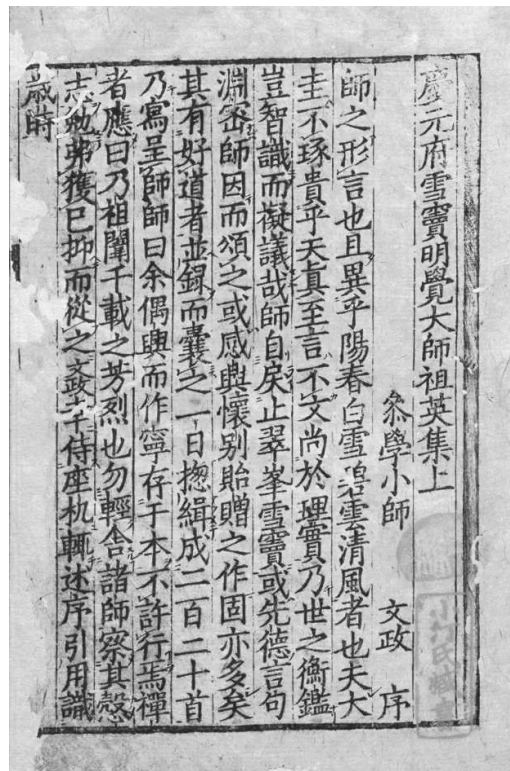 慶元府雪竇明覺大師祖英集上
叅學小師 文政 序
師之形言也且異乎陽春白雪碧雲清風者也夫大
圭不琢貴乎天真至言不文尚於理實乃世之衡鑑
豈智識而擬議哉師自戾止翠峯雪竇或先德言句
淵密師因而頌之或感興懷别貽贈之作固亦多矣
其有好道者並録而囊之一日揔緝成二百二十首
乃寫呈師師曰余偶興而作寧存于本不許行焉禪
者應曰乃祖闡千載之芳烈也勿輕舍諸師察其慤
志勉弗獲已抑而從之文政幸侍座机輒述序引用識
歳時